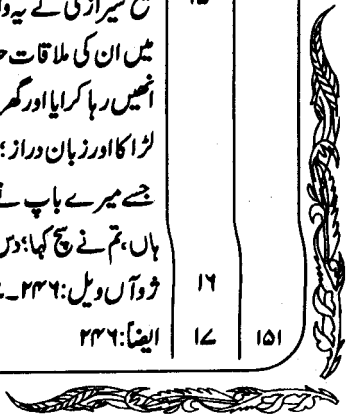 شیرازی نے یہ وا
میں ان کی ملاقات
انھیں رہا کرایا اور گھر
لڑاکا اور زبان دراز؛
جسے میرے باپ نے
ہاں، تم نے سچ کہا؛ دس
۱۶ ژوآں ویل: ۲۴۶۔
۱۵۱ ۱۷ ایضاً: ۲۴۶